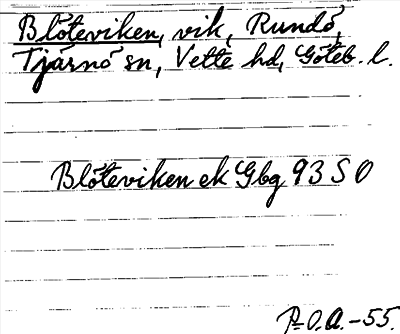 Blöteviken, vik, Rundö,
Tjärnö sn, Vette hd, Göteb. l.
Blöteviken ek Gbg 93 S O
P-O.A.-55.